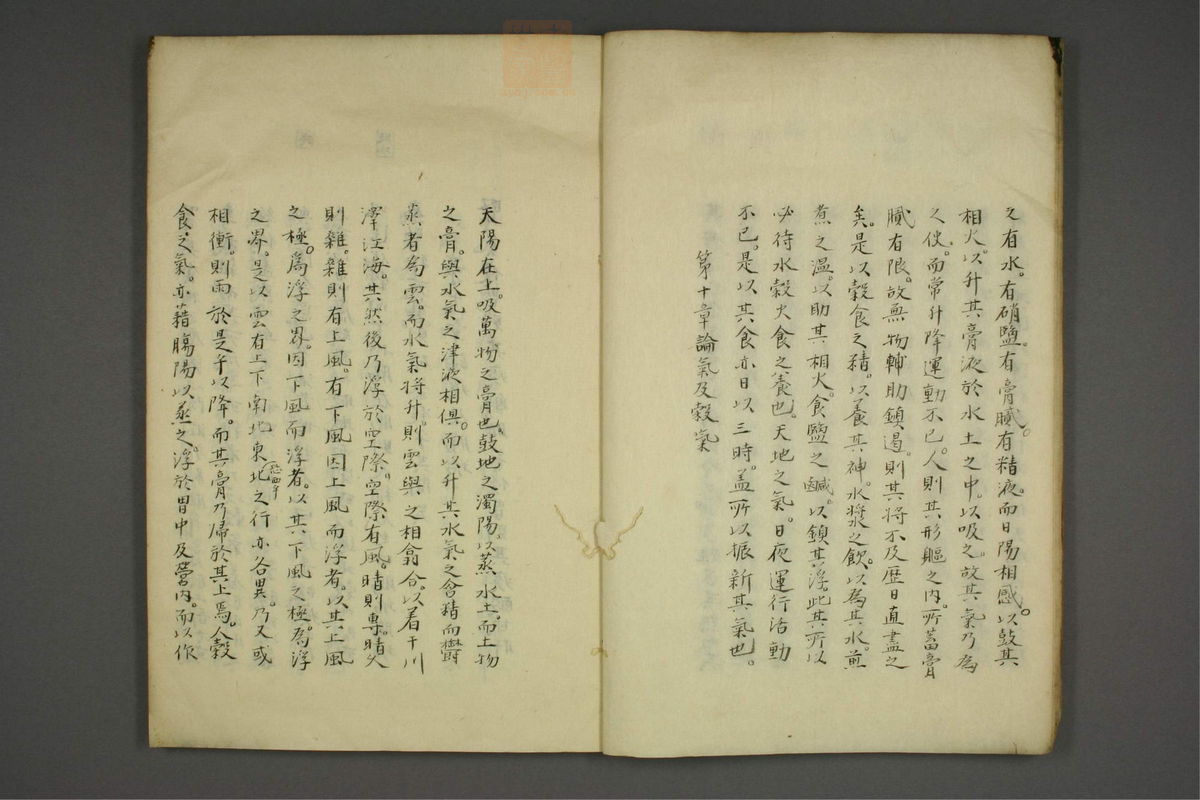 之有水。有硝鹽。有膏膩。有精液。而日陽相感。以鼓其
相火。以升其膏液於水土之中。以吸之。故其氣乃為
之使。而常升降運動不已。人則其形軀之內。所蓄膏
膩有限。故無物輔助鎮遏。則其將不及歷日直盡之
矣。是以穀食之精。以養其神。水漿之飲。以為其水。煎
煮之溫。以助其相火。食鹽之鹹。以鎮其浮。此其所以
必待水穀火食之養也。天地之氣。日夜運行活動
不已。是以其食亦日以三時。蓋所以振新其氣也。
第十章論氣及穀氣
天陽在上。吸萬物之膏也。鼓地之濁陽。以蒸水土。而土物
之膏。與水氣之津液相俱。而以升其水氣之含精而欝
蒸者為雲。而水氣將升。則雲與之相翕合。以着于川
澤江海。其然後乃浮於空際。空際有風。晴則專。晴久
則雜。雜則有上風。有下風因上風而浮者。以其上風
之極。為浮之界。因下風而浮者。以其下風之極為浮
之界。是以雲有上下南北東北之行亦各異。乃又或
恐西字
相衝。則雨於是乎以降。而其膏乃帰於其上焉。人穀
食之氣。亦藉腸陽以蒸之。浮於胃中及營內。而以作